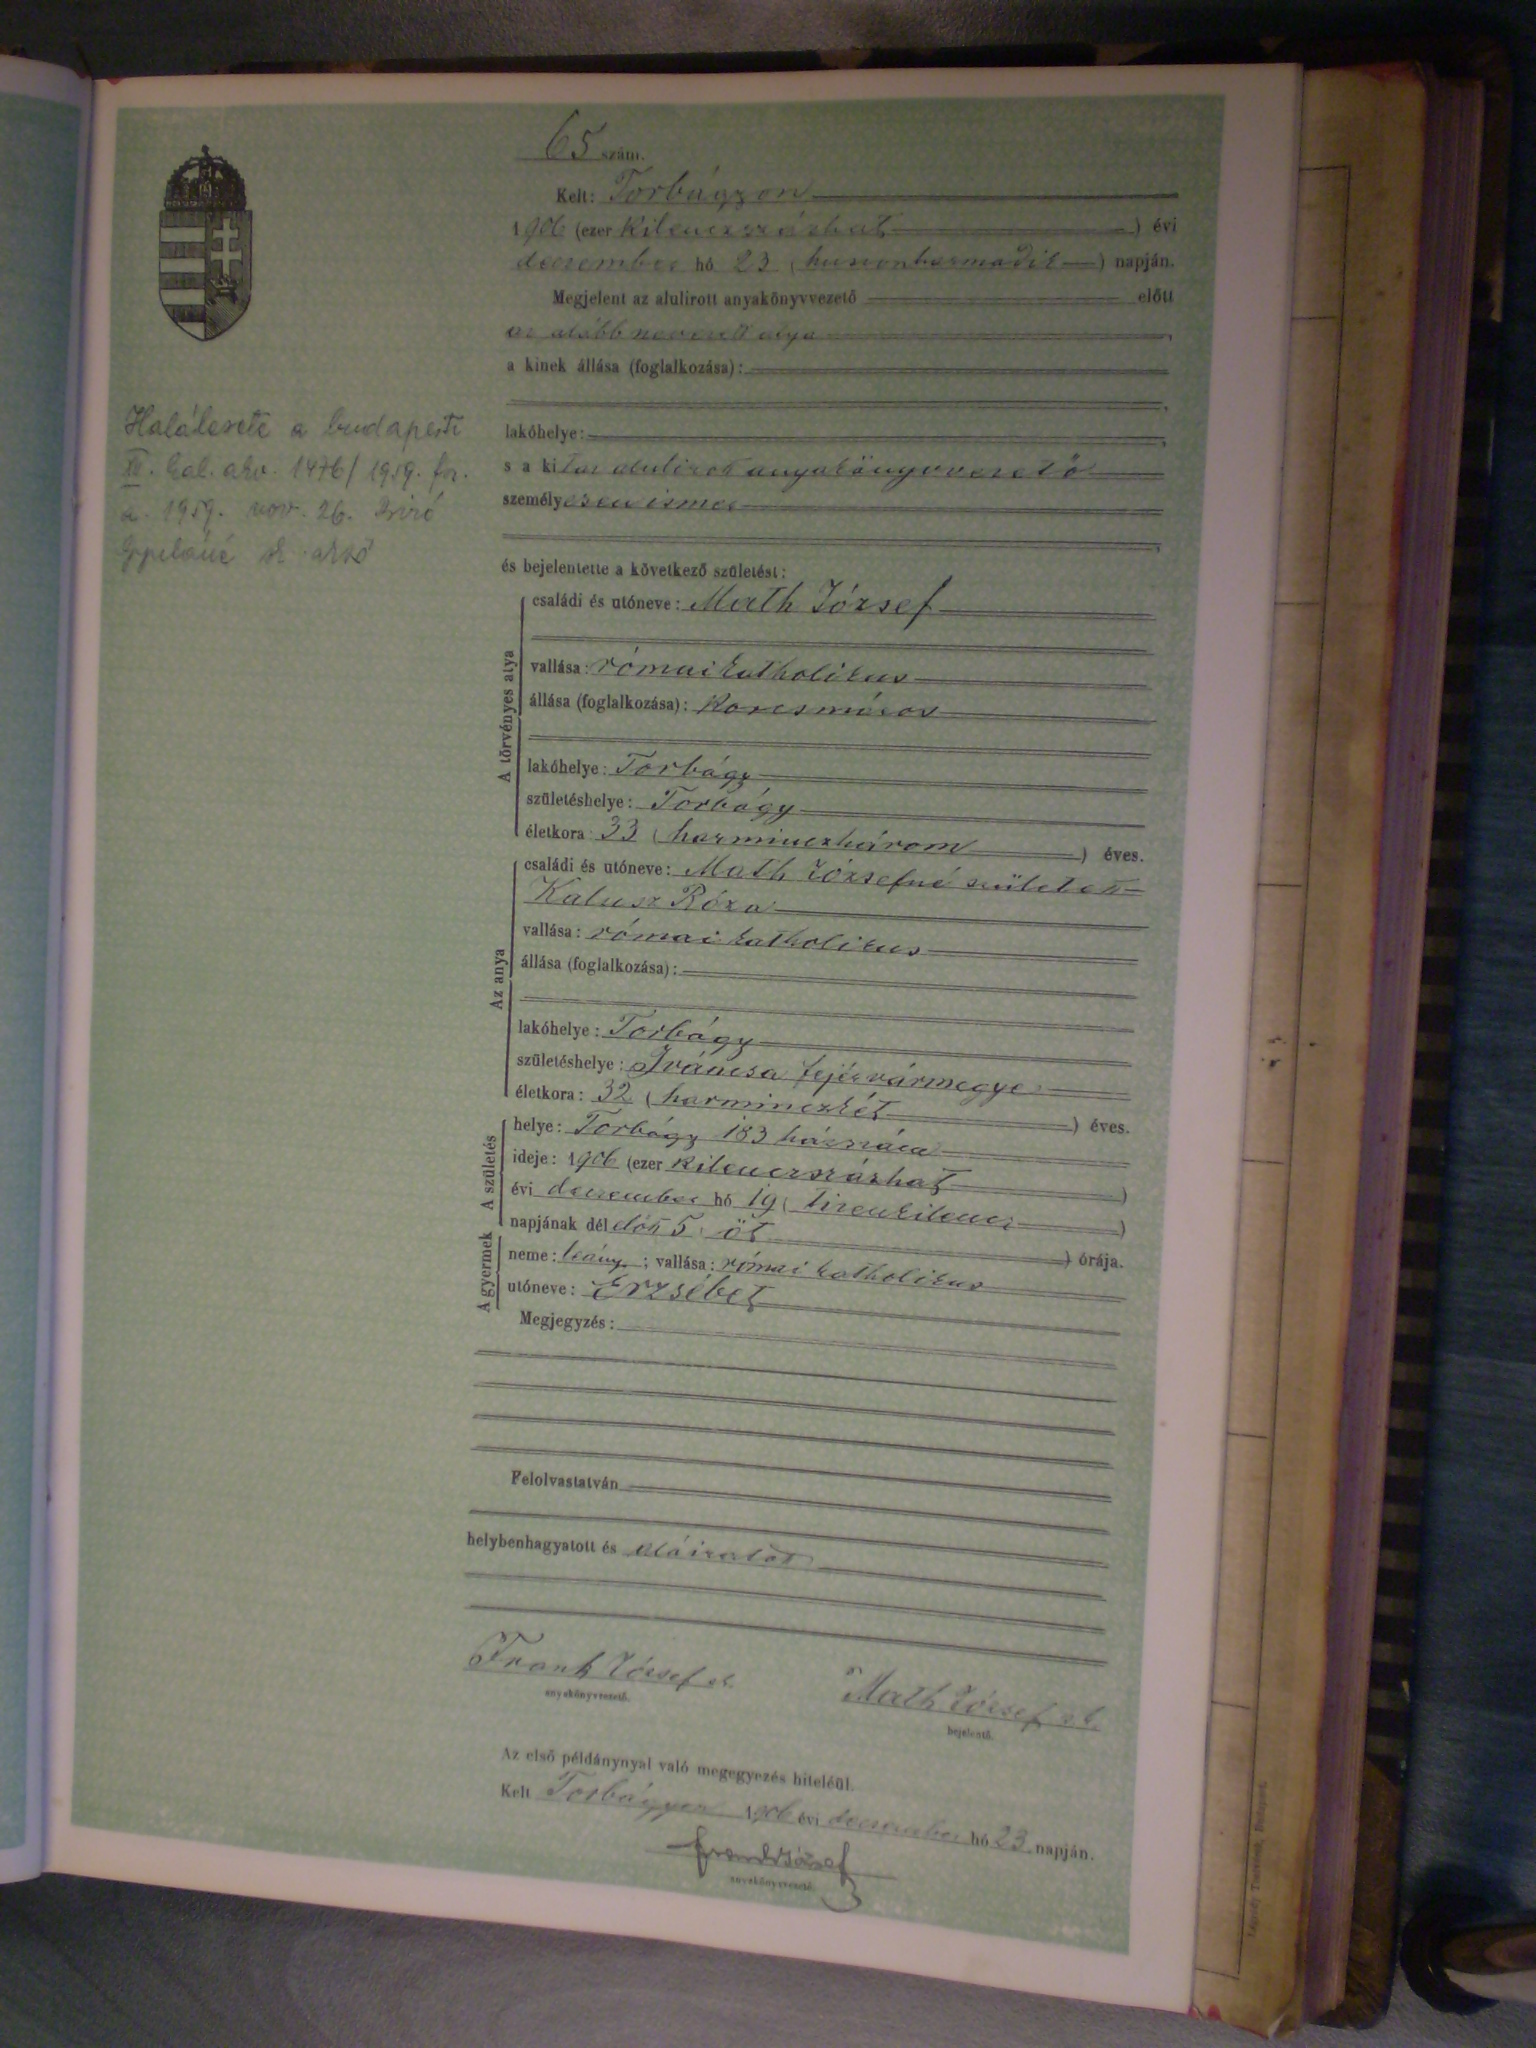 65 szám.
Kelt: Torbágyon
1906 (ezer kilenczszázhat) évi
deczember hó 23 (huszonharmadik) napján.
Megjelent az alulirott anyakönyvvezető előtt
az alább nevezett atya,
a kinek állása (foglalkozása):
lakóhelye:
s a kit az alulirott anyakönyvvezető
személyesen ismer
és bejelentette a következő születést:
A törvényes atya
családi és utóneve: Math József
vallása: római katholikus
állása (foglalkozása): korcsmáros
lakóhelye: Torbágy
születéshelye: Torbágy
életkora: 33 (harminczhárom) éves.
Az anya
családi és utóneve: Math Józsefné született
Kalusz Róza
vallása: római katholikus
állása (foglalkozása):
lakóhelye: Torbágy
születéshelye: Iváncsa fejérvármegye
életkora: 32 (harminczkét) éves.
A születés
helye: Torbágy 183 házszám
ideje: 1906 (ezer kilenczszázhat)
évi deczember hó 19 (tizenkilencz)
napjának dél előtt 5 (öt) órája.
A gyermek
neme: leány; vallása: római katholikus
utóneve: Erzsébet
Megjegyzés:
Felolvastatván
helybenhagyatott és aláiratott
Frank József sk.
anyakönyvvezető.
Math József s.k.
bejelentő.
Az első példánynyal való megegyezés hiteléül.
Kelt Torbágyon 1906 évi deczember hó 23 napján.
Frank József
anyakönyvvezető.
Halálesete a budapesti
ker. akv. 1476/1959. fsz.
a. 1959. nov. 26. Biró